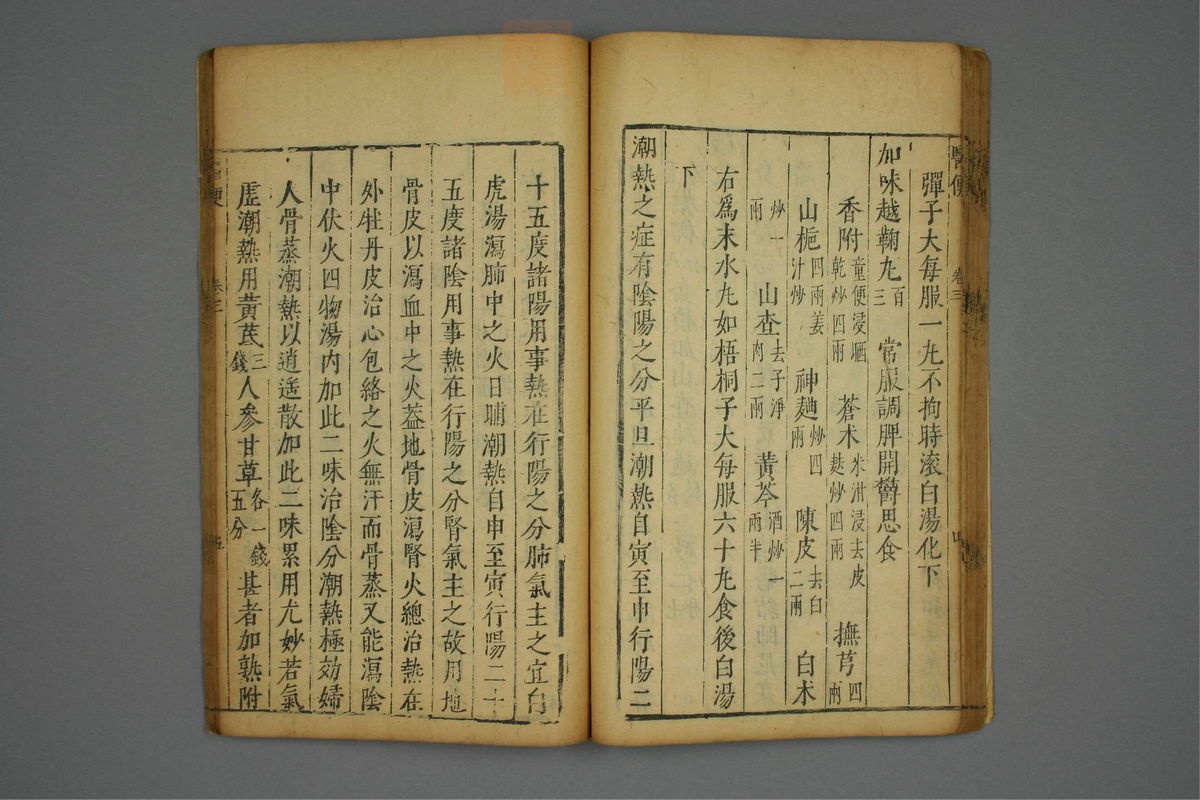 醫便 卷三
彈子大每服一丸不拘時滚白湯化下
加味越鞠丸百三 常服調脾開欝思食
香附童便浸晒乾炒四兩 蒼术米泔浸去皮麩炒四兩 撫芎四兩
山梔四兩姜汁炒 神麯炒四兩 陳皮去白二兩 白术
炒一兩 山查去子淨肉二兩 黄芩酒炒一兩半
右為末水丸如梧桐子大每服六十丸食後白湯
下
潮熱之症有陰陽之分平旦潮熱自寅至申行陽二
十五度諸陽用事熱在行陽之分肺氣主之宜白
虎湯瀉肺中之火日晡潮熱自申至寅行陽二十
五度諸陰用事熱在行陽之分腎氣主之故用地
骨皮以瀉血中之火蓋地骨皮瀉腎火總治熱在
外牡丹皮治心包絡之火無汗而骨蒸又能瀉陰
中伏火四物湯内加此二味治陰分潮熱極効婦
人骨蒸潮熱以逍遥散加此二味累用尤妙若氣
虚潮熱用黄芪三錢人參甘草各一錢五分甚者加熟附
便 卷三 五